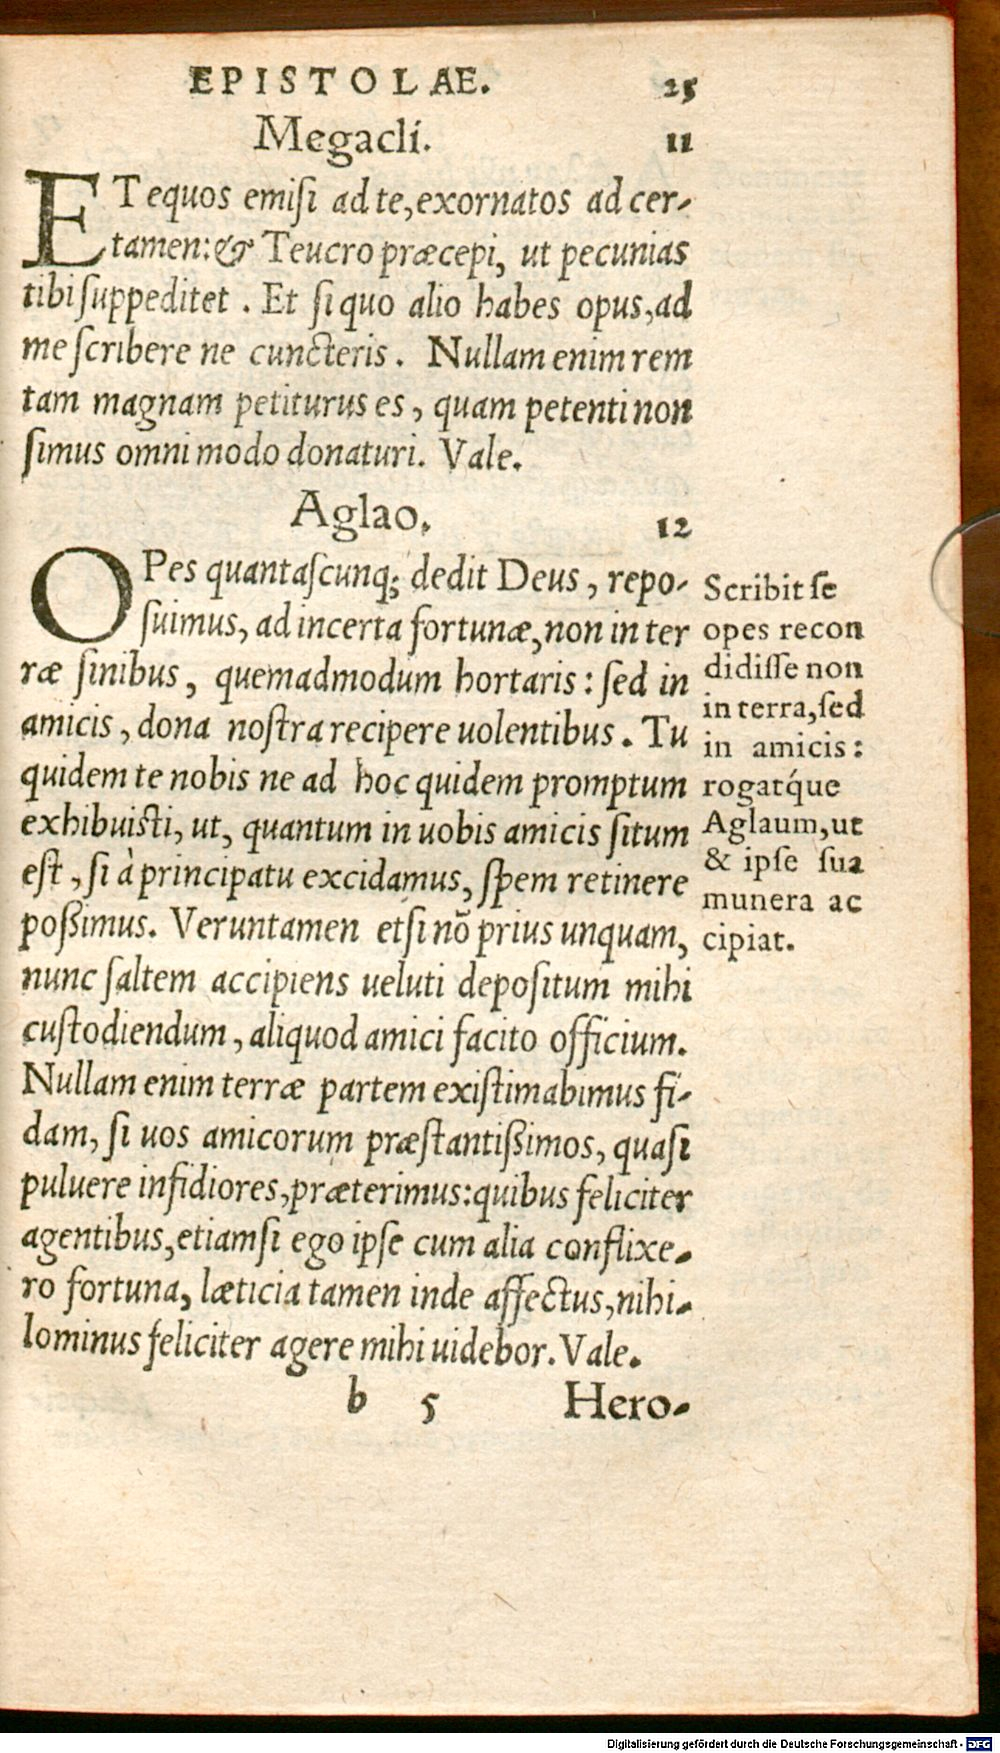 EPISTOLAE. 25
Megacli. 11
ET equos emisi ad te, exornatos ad cer-
tamen: & Teucro præcepi, ut pecunias
tibi suppeditet. Et si quo alio habes opus, ad
me scribere ne cuncteris. Nullam enim rem
tam magnam petiturus es, quam petenti non
simus omni modo donaturi. Vale.
Aglao. 12
OPes quantascunq; dedit Deus, repo-
suimus, ad incerta fortunæ, non in ter
ræ sinibus, quemadmodum hortaris: sed in
amicis, dona nostra recipere uolentibus. Tu
quidem te nobis ne ad hoc quidem promptum
exhibuisti, ut, quantum in uobis amicis situm
est, si à principatu excidamus, spem retinere
poßimus. Veruntamen etsi nõ prius unquam,
nunc saltem accipiens ueluti depositum mihi
custodiendum, aliquod amici facito officium.
Nullam enim terræ partem existimabimus fi-
dam, si uos amicorum præstantißimos, quasi
puluere infidiores, præterimus: quibus feliciter
agentibus, etiamsi ego ipse cum alia conflixe-
ro fortuna, læticia tamen inde affectus, nihi-
lominus feliciter agere mihi uidebor. Vale.
b 5 Hero-
Scribit se
opes recon
didisse non
in terra, sed
in amicis:
rogatq́ue
Aglaum, ut
& ipse sua
munera ac
cipiat.
Digitalisierung gefördert durch die Deutsche Forschungsgemeinschaft - DFG